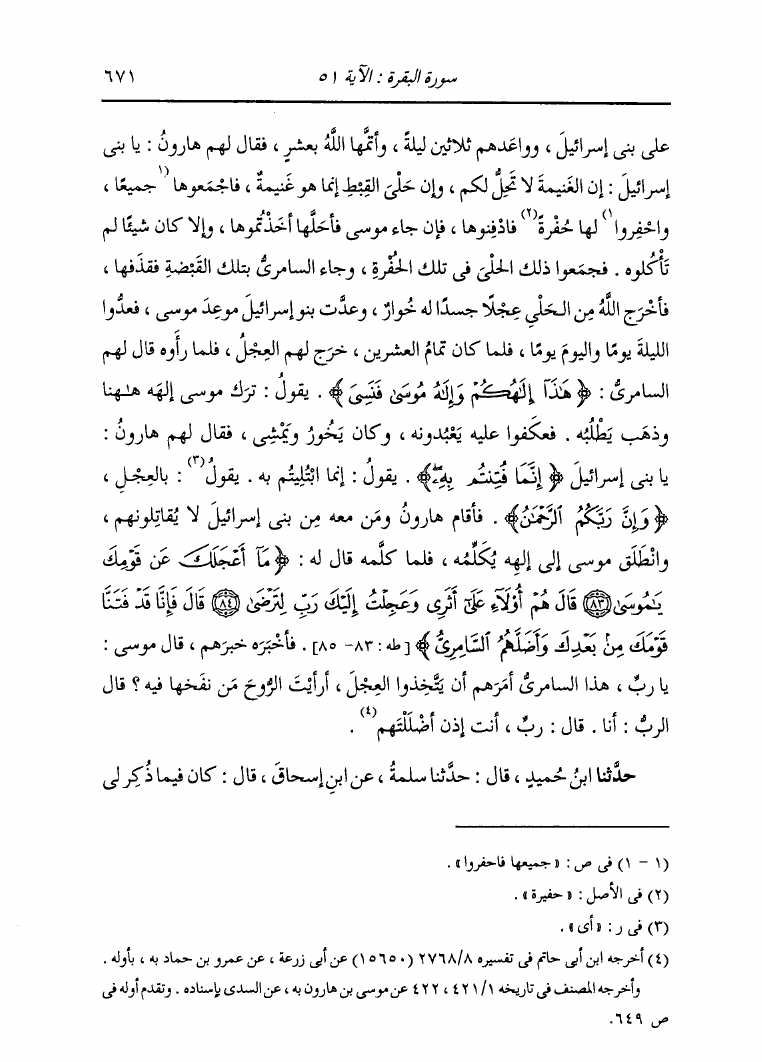 سورة البقرة : الآية ٥١ ٦٧١
على بنى إسرائيلَ ، وواعَدهم ثلاثين ليلةً ، وأتمَّها اللَّهُ بعشرٍ ، فقال لهم هارونُ : يا بنى
إسرائيلَ : إن الغَنيمةَ لا تَحِلُّ لكم ، وإن حَلْىَ القِبْطِ إنما هو غَنيمةٌ ، فاجْمَعوها (١جميعًا ،
واحْفِروا١) لها حُفْرةً(٢) فادْفِنوها ، فإن جاء موسى فأحَلَّها أخَذْتُموها ، وإلا كان شيئًا لم
تَأْكُلوه . فجمَعوا ذلك الحَلْىَ فى تلك الحُفْرةِ ، وجاء السامرىُّ بتلك القَبْضةِ فقذَفها ،
فأخْرَج اللَّهُ مِن الحَلْىِ عِجْلًا جسدًا له خُوارٌ ، وعدَّت بنو إسرائيلَ موعِدَ موسى ، فعدُّوا
الليلةَ يومًا واليومَ يومًا ، فلما كان تمامُ العشرين ، خرَج لهم العِجْلُ ، فلما رأَوه قال لهم
السامرىُّ : ﴿ هَٰذَآ إِلَٰهُكُمْ وَإِلَٰهُ مُوسَىٰ فَنَسِىَ ﴾ . يقولُ : ترَك موسى إلهَه هلهنا
وذهَب يَطْلُبُه . فعكَفوا عليه يَعْبُدونه ، وكان يَخُورُ ويَمْشِى ، فقال لهم هارونُ :
يا بنى إسرائيلَ ﴿ إِنَّمَا فُتِنتُم بِهِۦ ﴾ . يقولُ : إنما ابْتُلِيتُم به . يقولُ(٣) : بالعِجْلِ ،
﴿ وَإِنَّ رَبَّكُمُ ٱلرَّحْمَٰنُ ﴾ . فأقام هارونُ ومَن معه مِن بنى إسرائيلَ لا يُقاتِلونهم ،
وانْطَلَق موسى إلى إلهِه يُكَلِّمُه ، فلما كلَّمه قال له : ﴿ مَآ أَعْجَلَكَ عَن قَوْمِكَ
يَٰمُوسَىٰ ۝٨٣ قَالَ هُمْ أُوْلَآءِ عَلَىٰٓ أَثَرِى وَعَجِلْتُ إِلَيْكَ رَبِّ لِتَرْضَىٰ ۝٨٤ قَالَ فَإِنَّا قَدْ فَتَنَّا
قَوْمَكَ مِنۢ بَعْدِكَ وَأَضَلَّهُمُ ٱلسَّامِرِىُّ ﴾ [طه : ٨٣- ٨٥] . فأخْبَرَه خبرَهم ، قال موسى :
يا ربِّ ، هذا السامرىُّ أمَرَهم أن يَتَّخِذوا العِجْلَ ، أرأيْتَ الرُّوحَ مَن نفَخها فيه ؟ قال
الربُّ : أنا . قال : ربِّ ، أنت إذن أضْلَلْتَهم(٤) .
حدَّثنا ابنُ حُميدٍ ، قال : حدَّثنا سلمةُ ، عن ابنِ إسحاقَ ، قال : كان فيما ذُكِر لى
(١ - ١) فى ص : « جميعها فاحفروا » .
(٢) فى الأصل : « حفيرة » .
(٣) فى ر : « أى » .
(٤) أخرجه ابن أبى حاتم فى تفسيره ٢٧٦٨/٨ (١٥٦٥٠) عن أبى زرعة ، عن عمرو بن حماد به ، بأوله .
وأخرجه المصنف فى تاريخه ٤٢١/١ ، ٤٢٢ عن موسى بن هارون به ، عن السدى بإسناده . وتقدم أوله فى
ص ٦٤٩ .